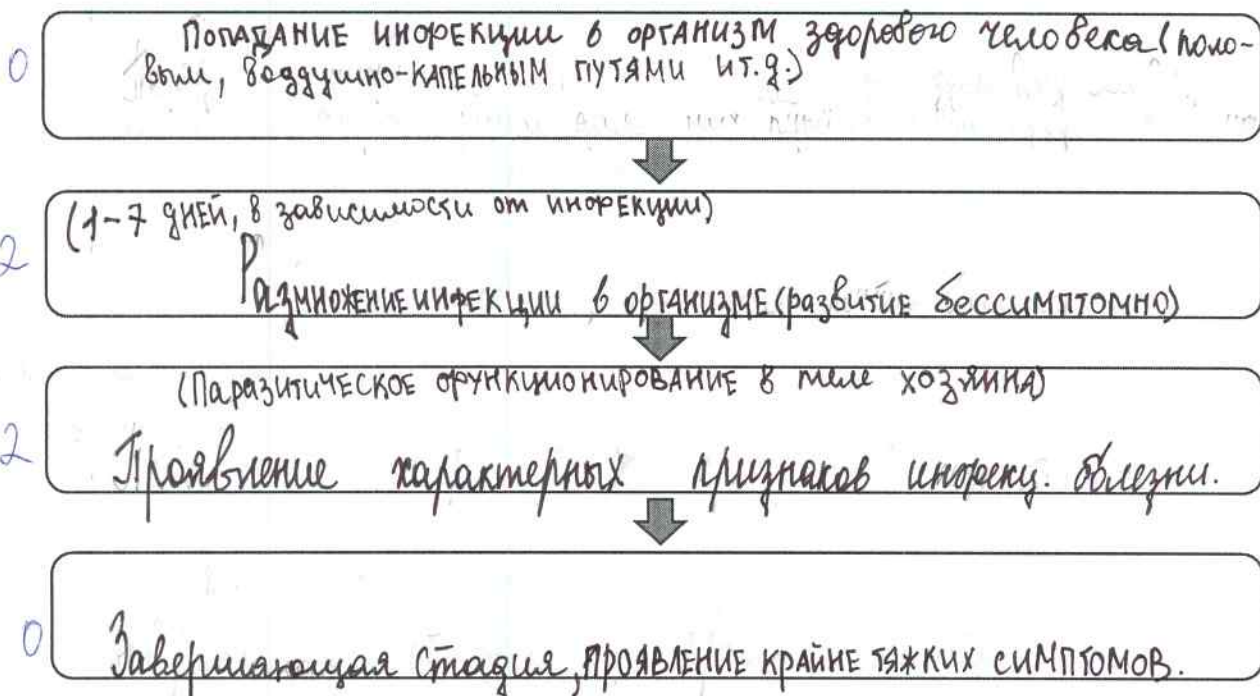 0
Попадание инфекции в организм здорового человека (поло-
вым, воздушно-капельным путями и т.д.)
2
(1-7 дней, в зависимости от инфекции)
Размножение инфекции в организме (развитие бессимптомно)
2
(Паразитическое функционирование в теле хозяина)
Проявление характерных признаков инфекц. болезни.
0
Завершающая стадия, проявление крайне тяжких симптомов.